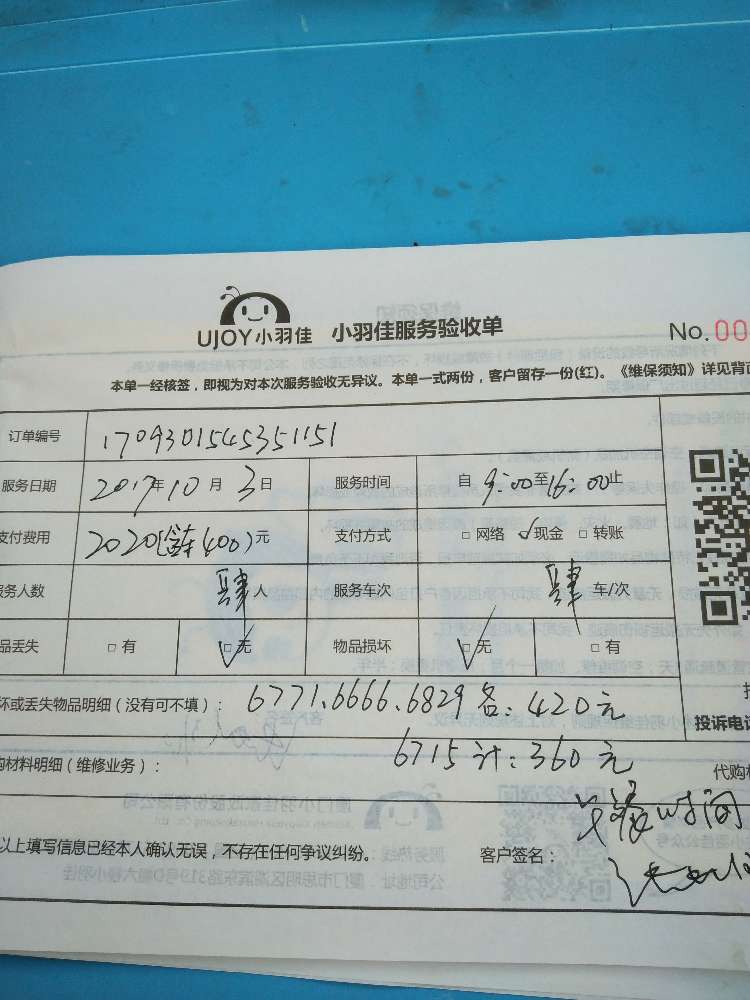 UJOY小羽佳 小羽佳服务验收单
No.00
本单一经核签，即视为对本次服务验收无异议。本单一式两份，客户留存一份(红)。《维保须知》详见背面
订单编号 1709301545351151
服务日期 2017年10月3日 服务时间 自9:00至16:00止
支付费用 2020(400)元 支付方式 □网络 ☑现金 □转账
服务人数 肆人 服务车次 肆车/次
品丢失 □有 ☑无 物品损坏 ☑无 □有
坏或丢失物品明细（没有可不填）： 6771.6666.6829各：420元
投诉电话
购材料明细（维修业务）： 6715计：360元
代购材
以上填写信息已经本人确认无误，不存在任何争议纠纷。 客户签名：